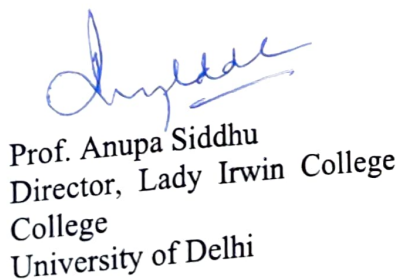 Prof. Anupa Siddhu
Director, Lady Irwin College
College
University of Delhi